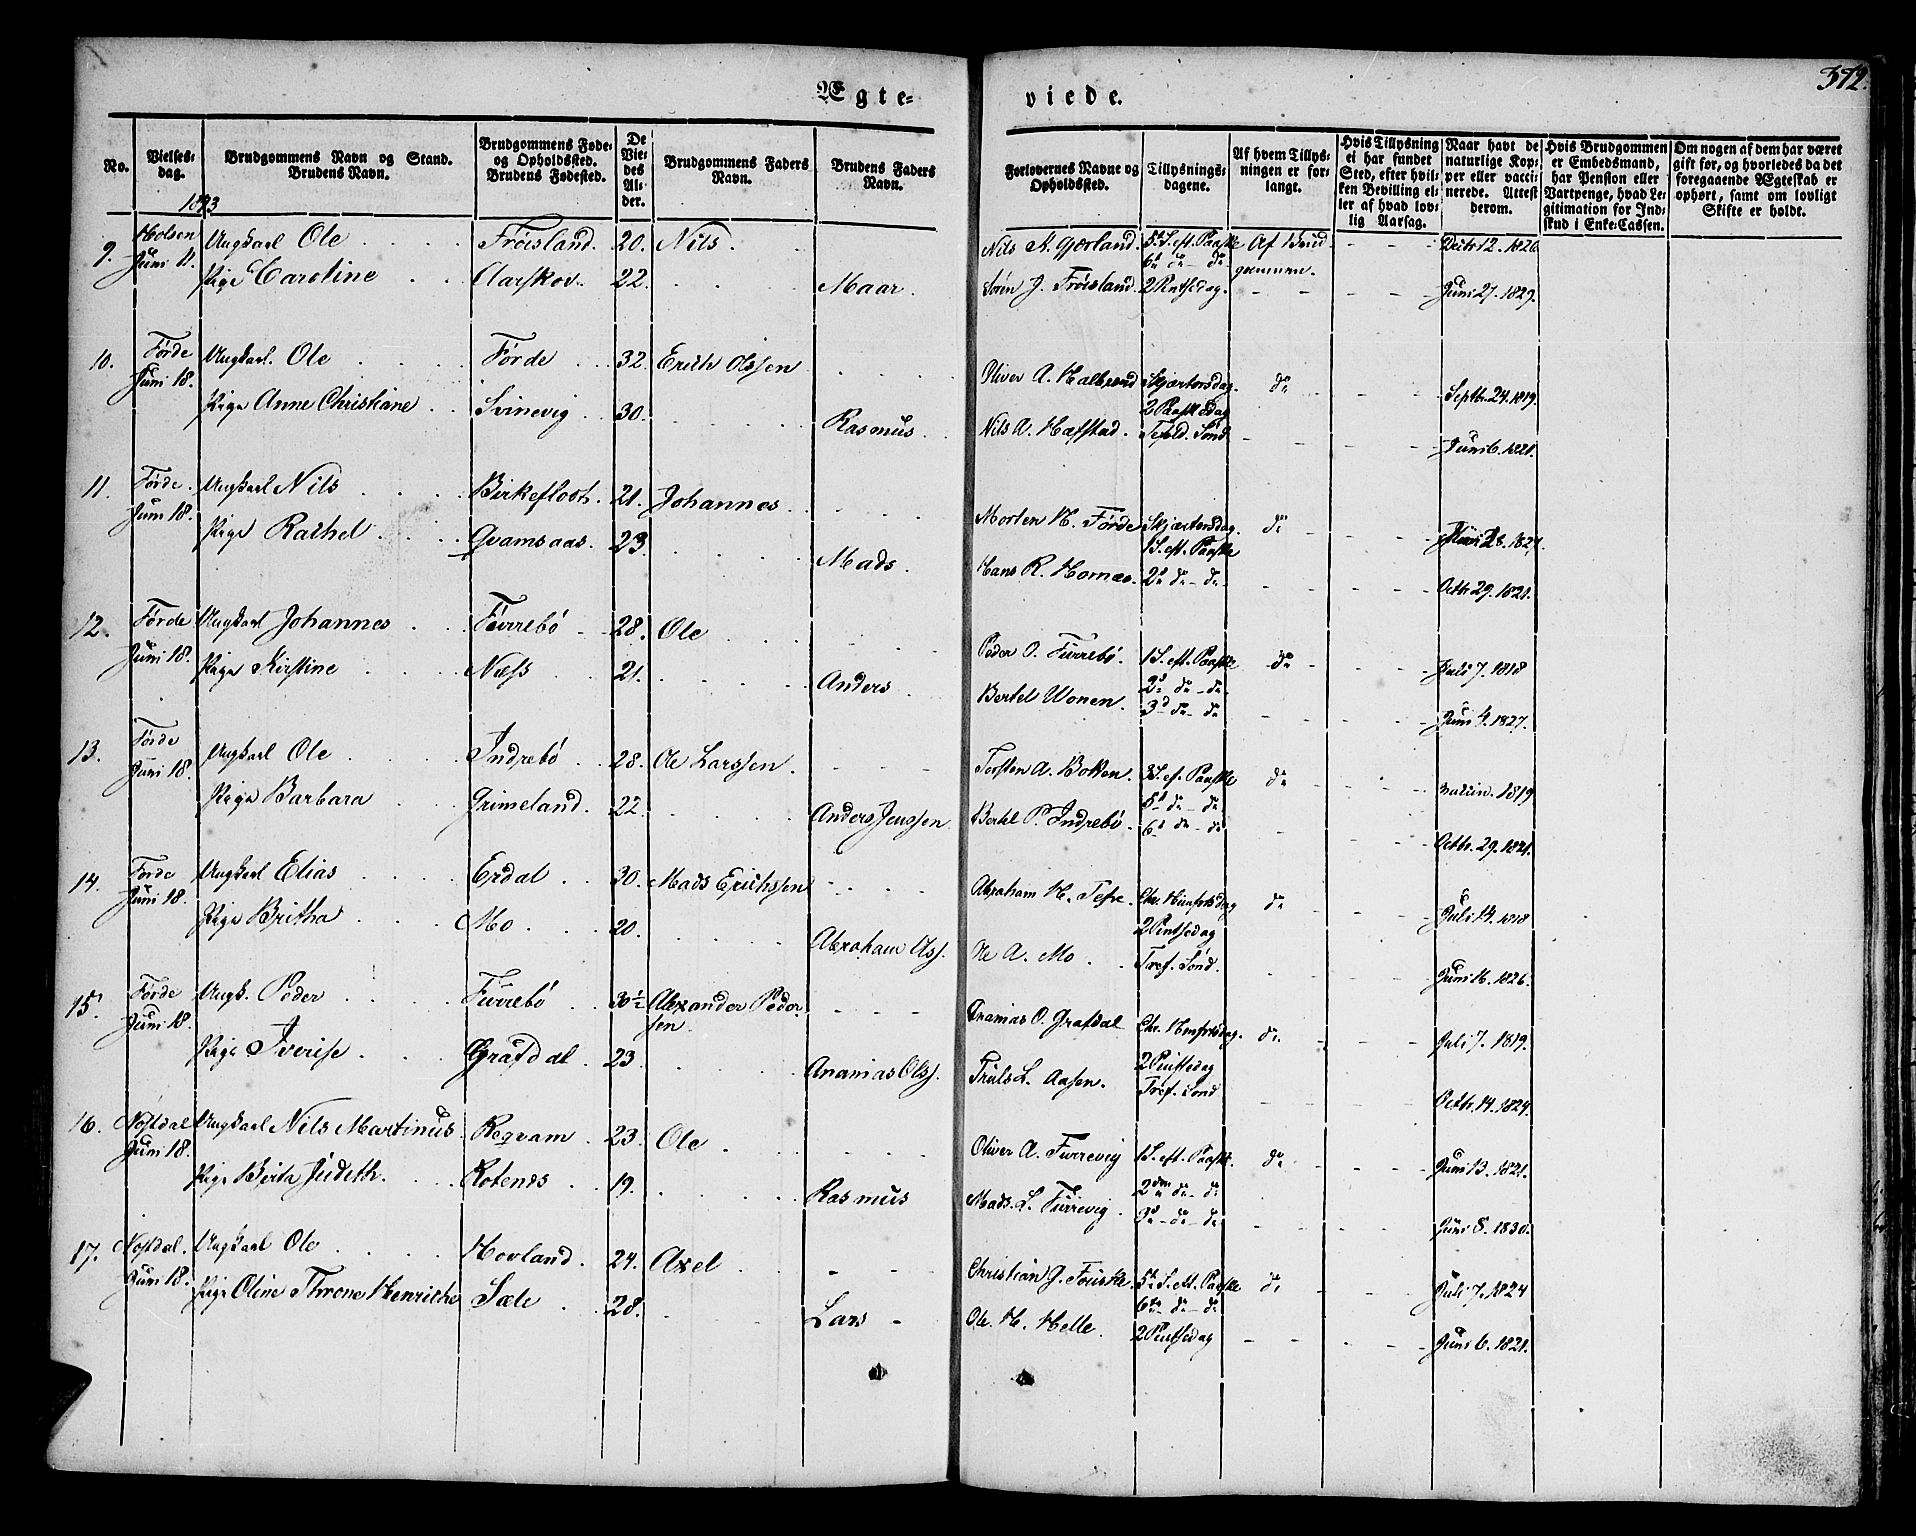 Ægte=
viede.
372.
No.
Vielses-
dag.
1843
Brudgommens Navn og Stand.
Brudens Navn.
Brudgommens Føde-
og Opholdssted.
Brudens Fødested.
De
Vie-
des
Al-
der.
Brudgommens Faders
Navn.
Brudens Faders
Navn.
Forlovernes Navne og
Opholdssted.
Tillysnings-
dagene.
Af hvem Tillys-
ningen er for-
langt.
Hvis Tillysning
ei har fundet
Sted, efter hvil-
ken Bevilling el-
ler af hvad lov-
lig Aarsag.
Naar havt de
naturlige Kop-
per eller vacci-
nerede. Attest
derom.
Hvis Brudgommen
er Embedsmand,
har Pension eller
Vartpenge, hvad Le-
gitimation for Ind-
skud i Enke-Cassen.
Om nogen af dem har været
gift før, og hvorledes da det
foregaaende Ægteskab er
ophørt, samt om lovligt
Skifte er holdt.
9. Holsen Ungkarl Ole Fröisland. 20. Nils. Nils A. Gjörland. 5te S. eft. Paaske Af Brud- Decbr 12. 1826
Juni 11. Pige Caroline Aarskov. 22. Maar. 6te do - do gommen.
Sören J. Fröisland. 2 Pintsedag. Juni 27. 1829.
10. Förde Ungkarl. Ole Förde 32. Erich Olssen Oliver A. Halbrend Skjærtorsdag. do Septbr. 24. 1819.
Juni 18. Pige Anne Christiane Svinevig 30. Rasmus 2 Paaskedag
Nils A. Hafstad. Juni 6. 1821.
11. Förde. Ungkarl Nils Birkeflost. 21. Johannes Morten N. Förde Skjærtorsdag. do
Juni 18. Pige Rachel Qvamsaas. 23. Mads. 1 S. eft. Paaske
Hans R. Hornæs. 2d do - do Octbr 29. 1821.
12. Förde Ungkarl Johannes Furrebö 28. Ole Peder O. Furrebö. 1 S. eft. Paaske do Juli 7. 1818
Juni 18. Pige Kirstine Næss 21. Anders 2d do - do
Bertel Wonen. 3d do - do Juni 4. 1827.
13. Förde Ungkarl Ole Indrebö 28. Ole Larssen. Torsten A. Botten. 3 S. ef. Paaske do 1819
Juni 18. Pige Barbara Grimeland. 22. Anders Jenssen 5d do - do
Bertel P. Indrebö. 6d do - do Octbr. 29. 1821.
14. Förde Ungkarl Elias Erdal 30. Mads Erichssen Abraham H. Tefre. Chr. Himfartsdag do Juli 14. 1818
Juni 18. Pige Britha Mo 20. Abraham Olss. 2 Pintsedag
Ole A. Mo Tref. Sönd. Juni 16. 1826.
15. Förde Ungk. Peder Furrebö 30½ Alexander Peder- Ananias O. Grafdal Chr. Himfartsdag. do Juli 7. 1819.
Juni 18. sen
Pige Iverise Grafdal 23. Ananias Olss. Truls L. Aasen. 2 Pintsedag
Tref. Sönd Octbr. 14. 1824.
16. Nostdal Ungkarl Nils Martinus Reqvam 23. Ole Oliver A. Furrevig 1 S. eft. Paaske. do Juni 13. 1821.
Juni 18. Pige Berta Judeth. Rotenæs 19. Rasmus 2den do - do
Mads. L. Furrevig 3d - do - do Juni 8. 1830.
17. Nostdal. Ungkarl Ole Hovland. 24. Axel Christian J. 5te S. eft. Paaske do Juli 7. 1824
Juni 18. Pige Oline Throne Henriche Sæle 28. Lars 6te do - do
Ole. H. Helle. 2 Pintsedag Juni 6. 1821.